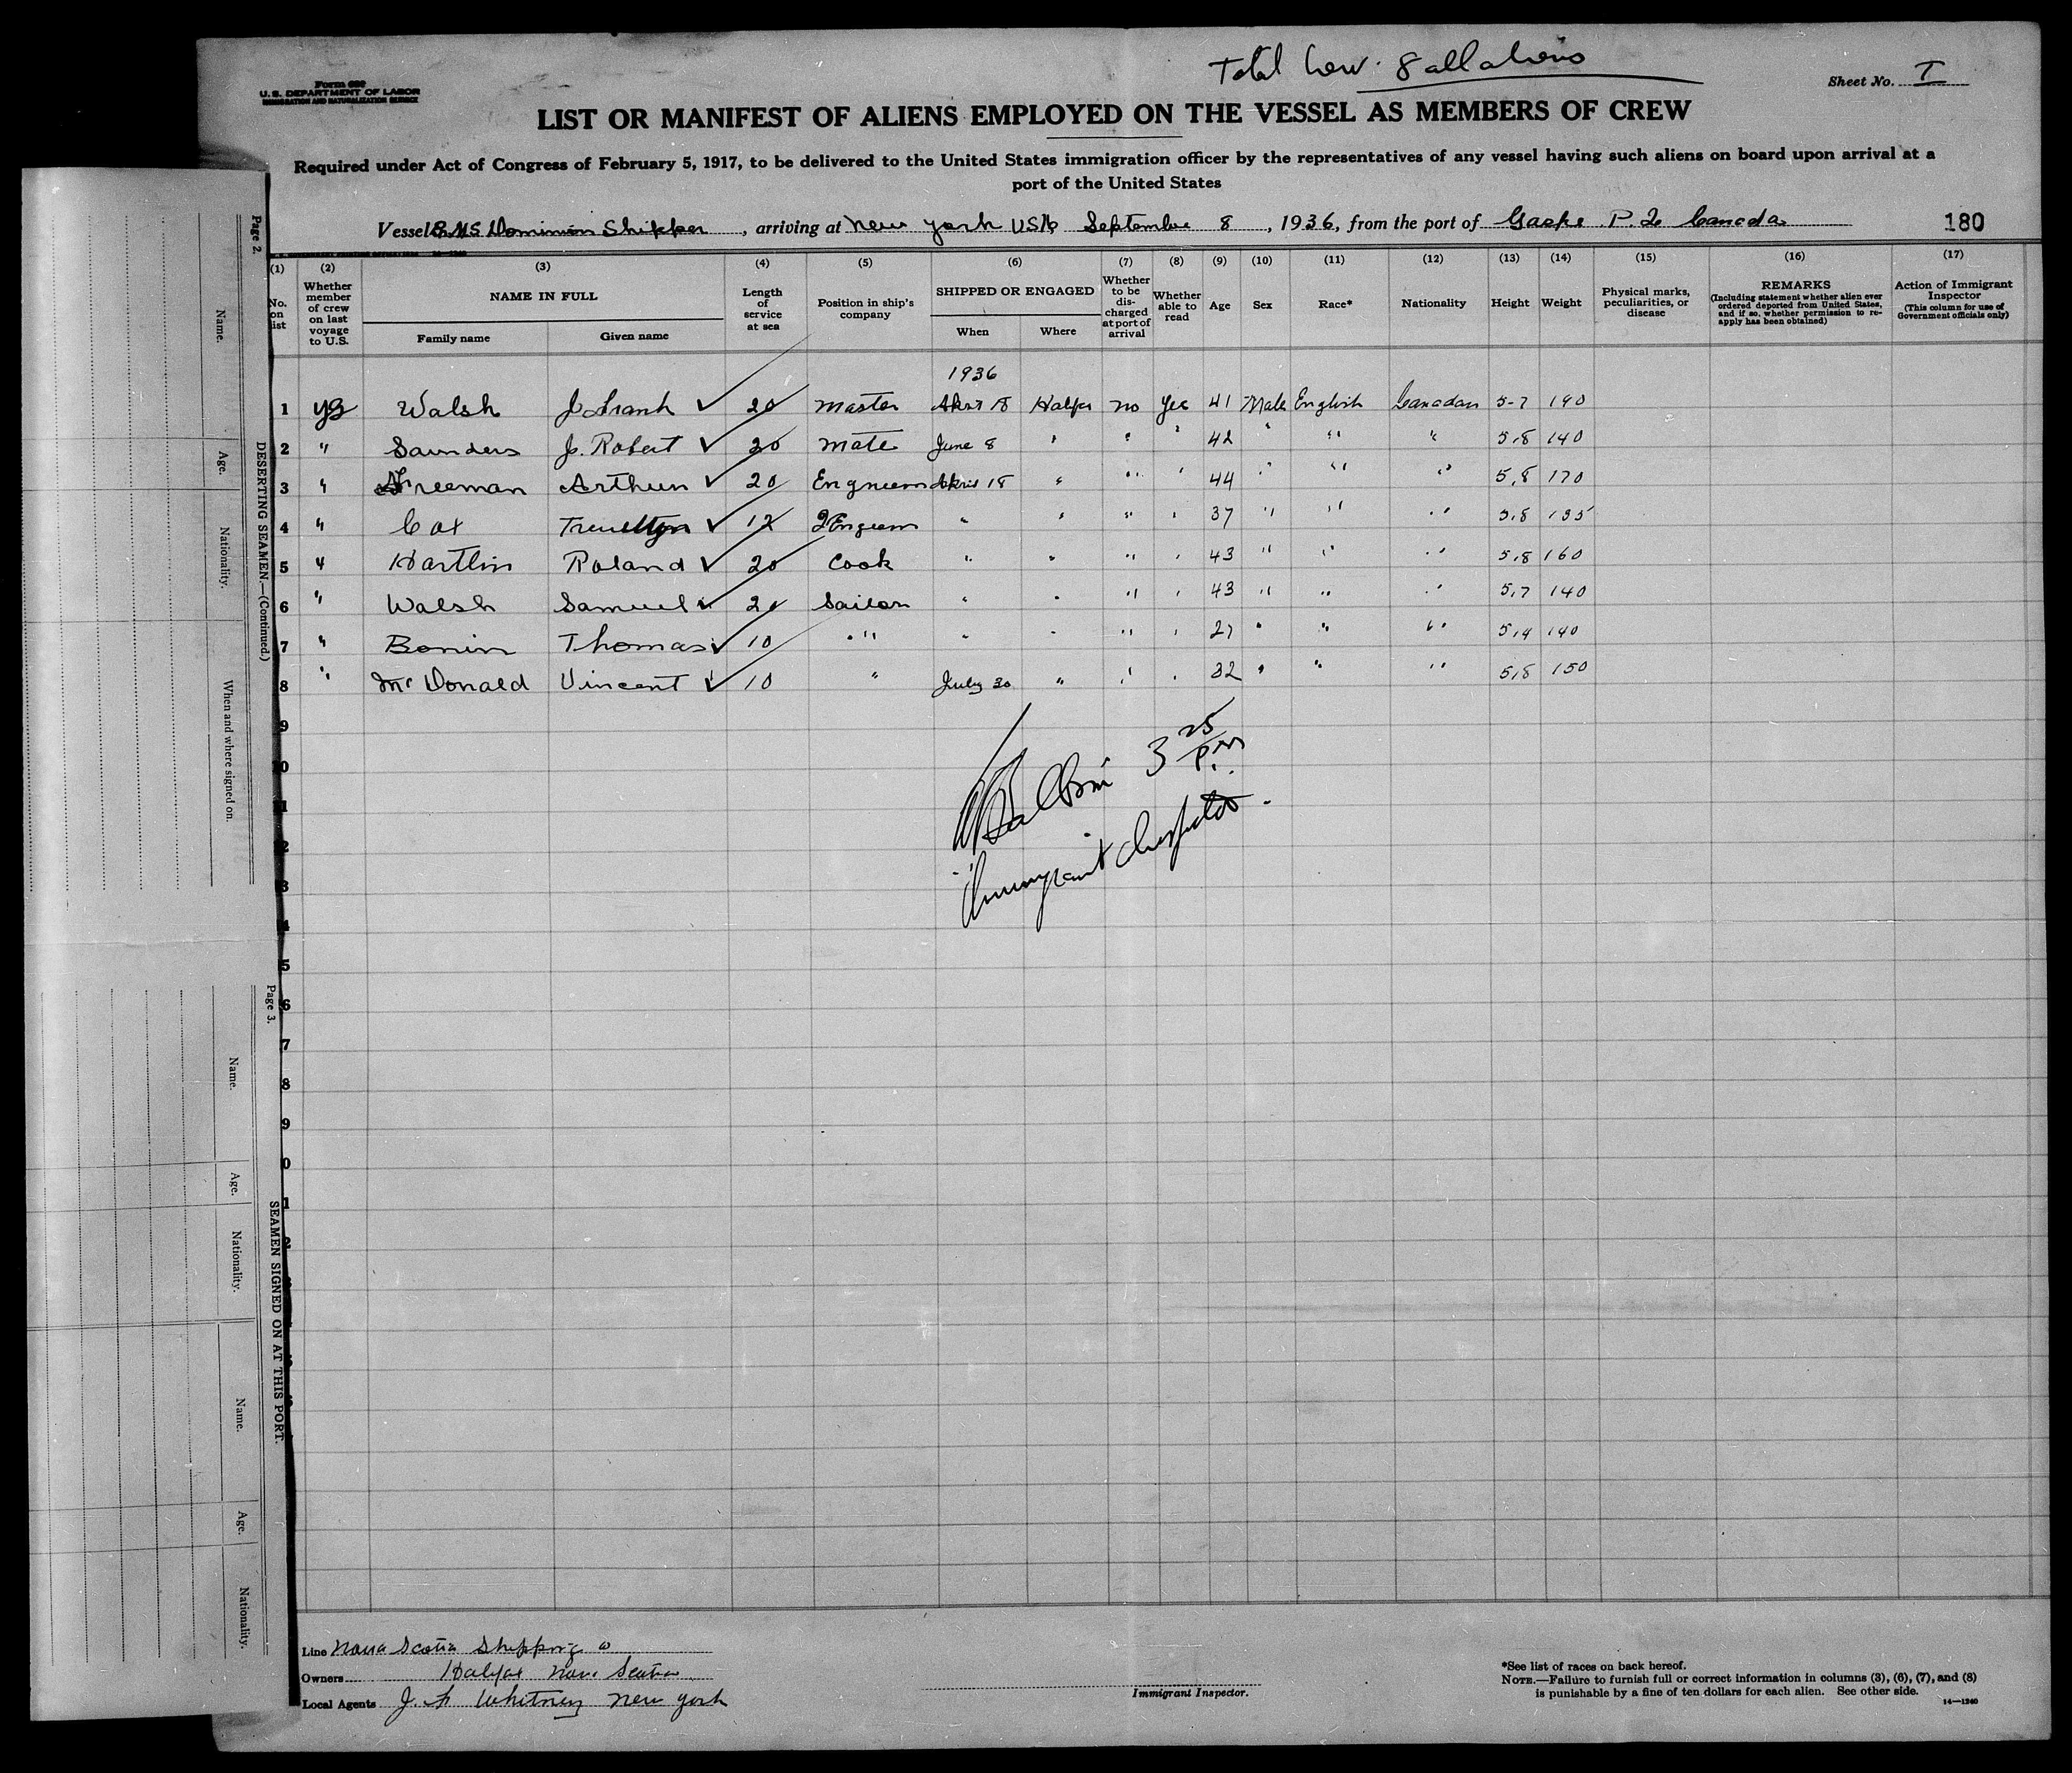 Total Crew 8 all aliens
Form 689
U. S. DEPARTMENT OF LABOR
IMMIGRATION AND NATURALIZATION SERVICE
Sheet No. I
LIST OR MANIFEST OF ALIENS EMPLOYED ON THE VESSEL AS MEMBERS OF CREW
Required under Act of Congress of February 5, 1917, to be delivered to the United States immigration officer by the representatives of any vessel having such aliens on board upon arrival at a
port of the United States
Vessel Dominion Shipper, arriving at New York USA September 8, 1936, from the port of Gaspe P.Q Canada
180
(1) (2) (3) (4) (5) (6) (7) (8) (9) (10) (11) (12) (13) (14) (15) (16) (17)
No. on list
Whether member of crew on last voyage to U.S.
NAME IN FULL
Family name
Given name
Length of service at sea
Position in ship's company
SHIPPED OR ENGAGED
When
Where
Whether to be discharged at port of arrival
Whether able to read
Age
Sex
Race*
Nationality
Height
Weight
Physical marks, peculiarities, or disease
REMARKS
(Including statement whether alien ever ordered deported from United States, and if so, whether permission to reapply has been obtained)
Action of Immigrant Inspector
(This column for use of Government officials only)
1936
1 yes Walsh J. Frank ✓ 20 Master April 18 Halifax no Yes 41 Male English Canadian 5-7 190
2 " Saunders J. Robert ✓ 20 Mate June 8 " " " 42 " " " 5,8 140
3 " Freeman Arthur ✓ 20 Engineer April 18 " " " 44 " " " 5,8 170
4 " Cox ✓ 12 2 Engineer " " " " 37 " " " 5,8 135
5 " Hartlin Roland ✓ 20 Cook " " " " 43 " " " 5,8 160
6 " Walsh Samuel ✓ 20 Sailor " " " " 43 " " " 5,7 140
7 " Bonin Thomas ✓ 10 " " " " " 27 " " " 5,4 140
8 " McDonald Vincent ✓ 10 " July 30 " " " 32 " " " 5,8 150
9
10
11
2
3
4
5
6
7
8
9
0
1
3 25 P.M
Immigrant Inspector.
Page 2.
DESERTING SEAMEN.—(Continued.)
Name.
Age.
Nationality.
When and where signed on.
Page 3.
SEAMEN SIGNED ON AT THIS PORT.
Name.
Age.
Nationality.
Name.
Age.
Nationality.
Line Nova Scotia Shipping Co
Owners Halifax Nova Scotia
Local Agents J. F. Whitney New York
Immigrant Inspector.
*See list of races on back hereof.
NOTE.—Failure to furnish full or correct information in columns (3), (6), (7), and (8)
is punishable by a fine of ten dollars for each alien. See other side.
14—1240